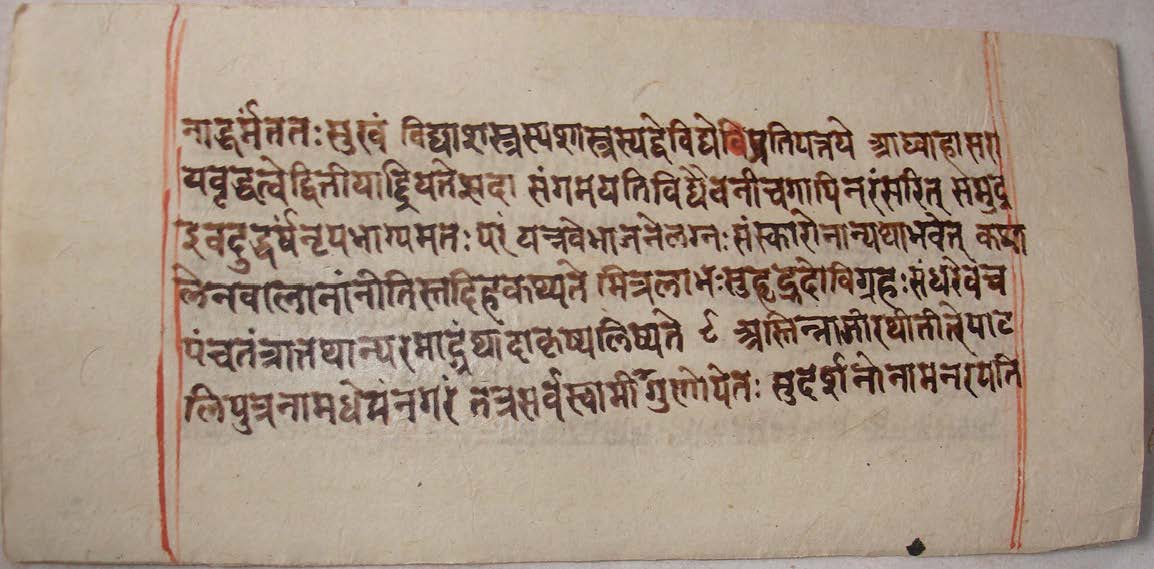 नाद्धर्मततः सुखं विद्याशस्त्रस्यशास्त्रस्यद्वेविद्येविप्रतिपत्तये आद्याहासरा
यवृद्धत्वेद्वितीयाद्रियतेसदा संगमयतिविद्यैवनीचगापिनरंसरित् समुद्र
इवदुर्द्धर्षंनृपंभाग्यमतः परं यन्नवेभाजनेलग्नः संस्कारोनान्यथाभवेत् कथा
लेनवालानांनीतिस्तदिहकथ्यते मित्रलाभः सुहृद्भेदोविग्रहः संधिरेवच
पंचतंत्रात्तथान्यस्माद्ग्रंथादाकृष्यलिख्यते ९ अस्तिन्भागीरथीतीरेपाट
लिपुत्रनामधेयंनगरं तत्रसर्वस्वामीगुणोपेतः सुदर्शनोनामनरपति